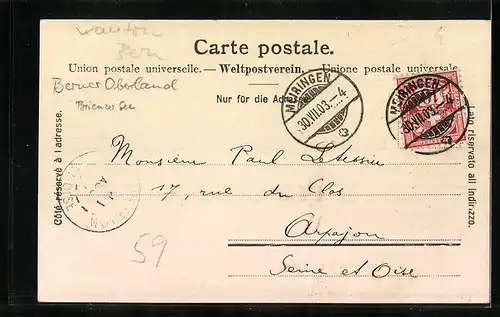 Kanton
Bern
Carte postale.
Union postale universelle. — Weltpostverein. — Unione postale universale
Berner Oberland
Nur für die Adresse
Brienzer See
MEIRINGEN
30.VII.03.–4
MEIRINGEN
30.VII.03.–4
Côté réservé à l'adresse.
Lato riservato all'indirizzo.
Monsieur Paul
17, rue du Clos
Arpajon
Seine et Oise
59